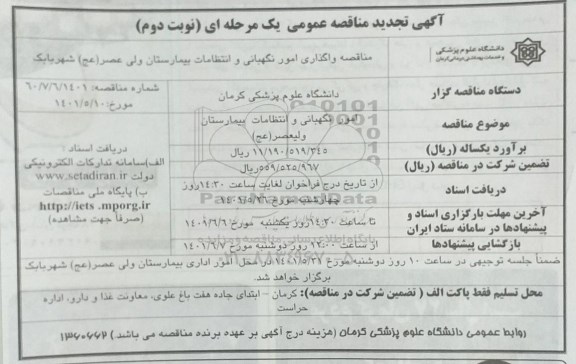 آگهی تجدید مناقصه عمومی یک مرحله ای (نوبت دوم)
دانشگاه علوم پزشکی
و خدمات بهداشتی درمانی کرمان
مناقصه واگذاری امور نگهبانی و انتظامات بیمارستان ولی عصر(عج) شهربابک
دستگاه مناقصه گزار
دانشگاه علوم پزشکی کرمان
شماره مناقصه: ۶۰/۷/۶/۱۴۰۱
مورخ: ۱۴۰۱/۵/۱۰
موضوع مناقصه
امور نگهبانی و انتظامات بیمارستان
ولیعصر(عج)
برآورد یکساله (ریال)
۱۱/۱۹۰/۵۱۹/۳۴۵ ریال
تضمین شرکت در مناقصه (ریال)
۵۵۹/۵۲۵/۹۶۷ریال
دریافت اسناد :
الف)سامانه تدارکات الکترونیکی
دولت www.setadiran.ir
ب) پایگاه ملی مناقصات
http://iets .mporg.ir
(صرفا جهت مشاهده)
دریافت اسناد
از تاریخ درج فراخوان لغایت ساعت ۱۴:۳۰روز
چهارشنبه مورخ
آخرین مهلت بارگزاری اسناد و
پیشنهادها در سامانه ستاد ایران
تا ساعت ۱۴:۳۰روز یکشنبه مورخ
بازگشایی پیشنهادها
از ساعت روز دوشنبه مورخ
ضمناً جلسه توجیهی در ساعت ۱۰ روز دوشنبه مورخ در محل امور اداری بیمارستان ولی عصر(عج) شهربابک
برگزار خواهد شد.
محل تسلیم فقط پاکت الف ( تضمین شرکت در مناقصه): کرمان – ابتدای جاده هفت باغ علوی، معاونت غذا و دارو، اداره
حراست
روابط عمومی دانشگاه علوم پزشکی کرمان (هزینه درج آگهی بر عهده برنده مناقصه می باشد ) ۱۳۶۰۶۶۲